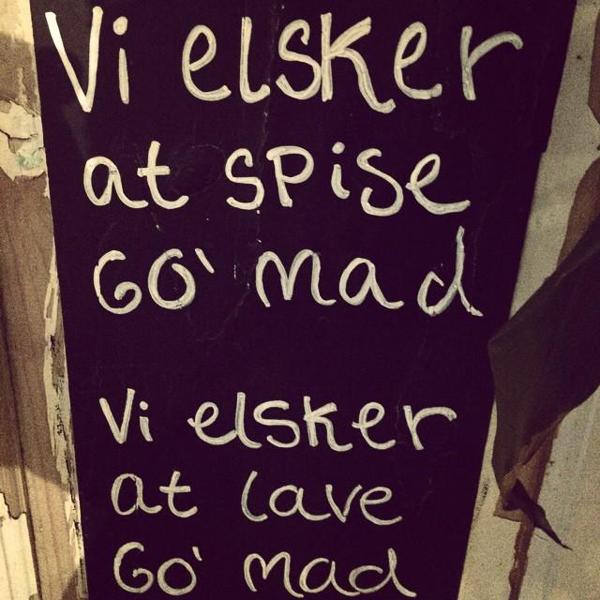 Vi elsker
at spise
Go' mad
Vi elsker
at lave
Go' mad